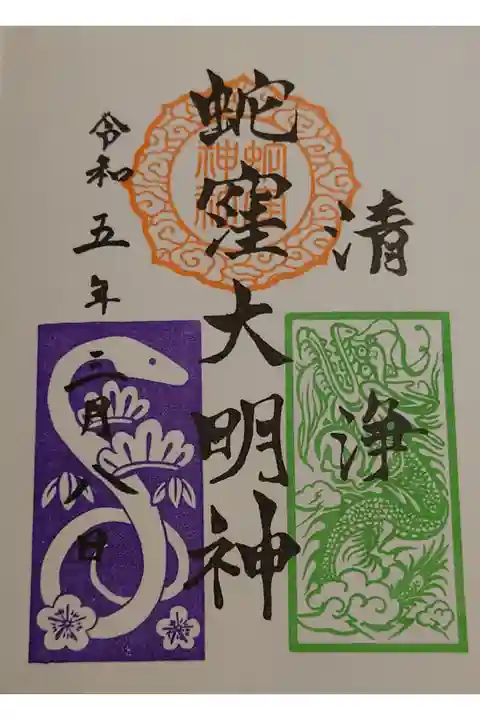 清浄
蛇窪大明神
令和五年三月八日
蛇窪
神社